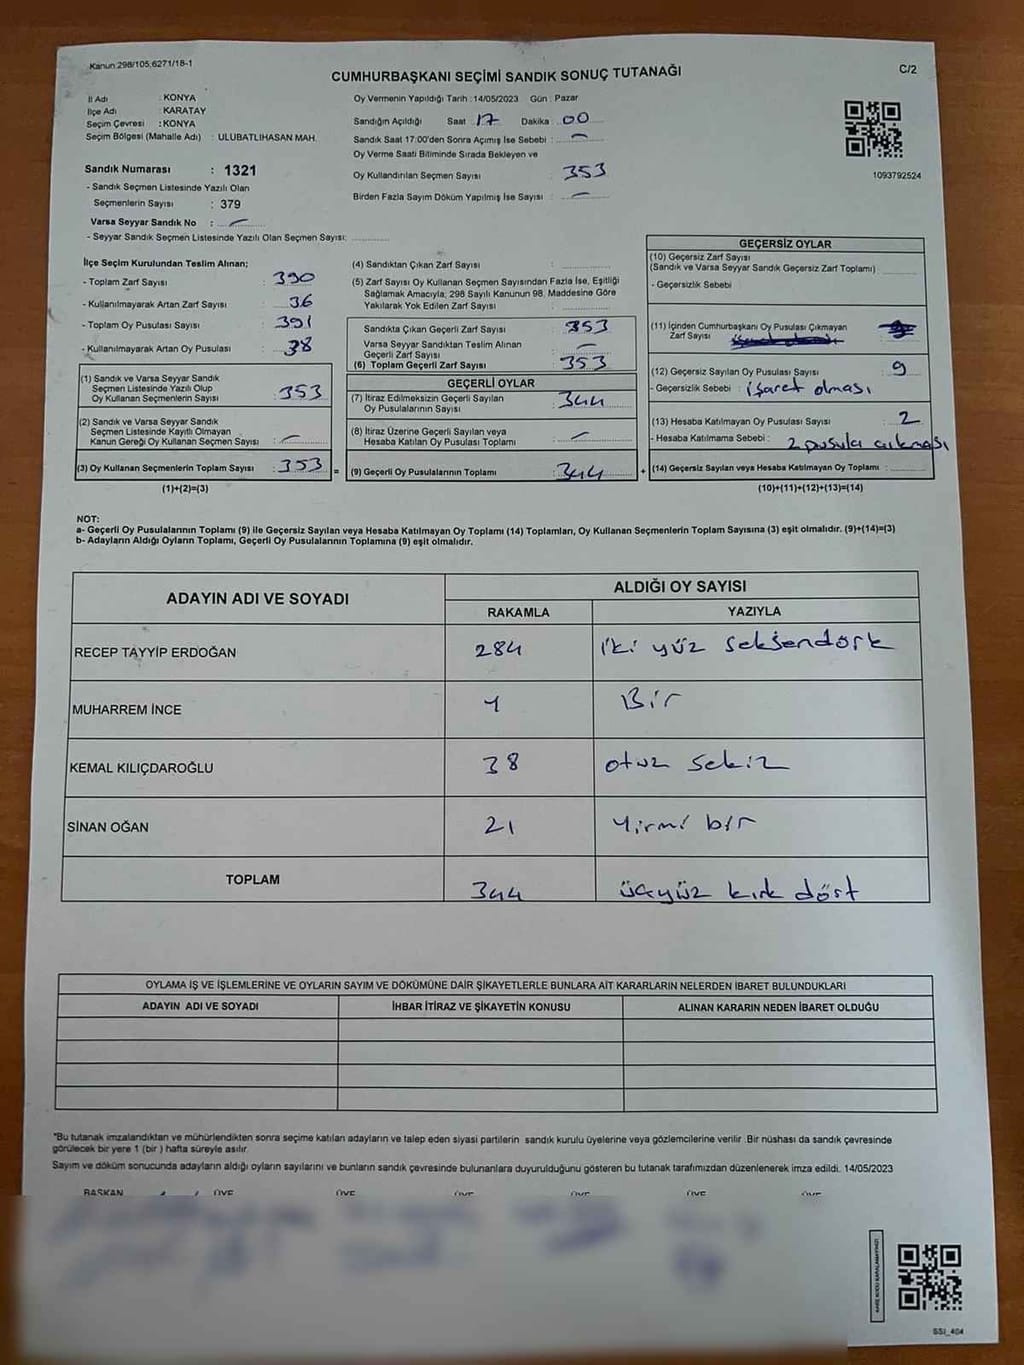 Kanun:298/105;6271/18-1
CUMHURBAŞKANI SEÇİMİ SANDIK SONUÇ TUTANAĞI
C/2
İl Adı : KONYA
İlçe Adı : KARATAY
Seçim Çevresi : KONYA
Seçim Bölgesi (Mahalle Adı) : ULUBATLIHASAN MAH.
Sandık Numarası : 1321
- Sandık Seçmen Listesinde Yazılı Olan
Seçmenlerin Sayısı : 379
Varsa Seyyar Sandık No : -
- Seyyar Sandık Seçmen Listesinde Yazılı Olan Seçmen Sayısı: ............
Oy Vermenin Yapıldığı Tarih : 14/05/2023 Gün : Pazar
Sandığın Açıldığı Saat : 17 Dakika : 00
Sandık Saat 17:00'den Sonra Açımış İse Sebebi : -
Oy Verme Saati Bitiminde Sırada Bekleyen ve
Oy Kullandırılan Seçmen Sayısı : 353
Birden Fazla Sayım Döküm Yapılmış İse Sayısı : -
1093792524
İlçe Seçim Kurulundan Teslim Alınan;
- Toplam Zarf Sayısı : 390
- Kullanılmayarak Artan Zarf Sayısı : 36
- Toplam Oy Pusulası Sayısı : 391
- Kullanılmayarak Artan Oy Pusulası : 38
(1) Sandık ve Varsa Seyyar Sandık
Seçmen Listesinde Yazılı Olup
Oy Kullanan Seçmenlerin Sayısı : 353
(2) Sandık ve Varsa Seyyar Sandık
Seçmen Listesinde Kayıtlı Olmayan
Kanun Gereği Oy Kullanan Seçmen Sayısı : -
(3) Oy Kullanan Seçmenlerin Toplam Sayısı : 353 =
(1)+(2)=(3)
(4) Sandıktan Çıkan Zarf Sayısı : ............
(5) Zarf Sayısı Oy Kullanan Seçmen Sayısından Fazla İse, Eşitliği
Sağlamak Amacıyla; 298 Sayılı Kanunun 98. Maddesine Göre
Yakılarak Yok Edilen Zarf Sayısı : ............
Sandıkta Çıkan Geçerli Zarf Sayısı : 353
Varsa Seyyar Sandıktan Teslim Alınan
Geçerli Zarf Sayısı : -
(6) Toplam Geçerli Zarf Sayısı : 353
GEÇERLİ OYLAR
(7) İtiraz Edilmeksizin Geçerli Sayılan
Oy Pusulalarının Sayısı : 344
(8) İtiraz Üzerine Geçerli Sayılan veya
Hesaba Katılan Oy Pusulaları Toplamı : -
(9) Geçerli Oy Pusulalarının Toplamı : 344 +
GEÇERSİZ OYLAR
(10) Geçersiz Zarf Sayısı
(Sandık ve Varsa Seyyar Sandık Geçersiz Zarf Toplamı)
- Geçersizlik Sebebi
(11) İçinden Cumhurbaşkanı Oy Pusulası Çıkmayan
Zarf Sayısı :
(12) Geçersiz Sayılan Oy Pusulası Sayısı : 9
- Geçersizlik Sebebi : işaret olması
(13) Hesaba Katılmayan Oy Pusulası Sayısı : 2
- Hesaba Katılmama Sebebi : 2 pusula çıkması
(14) Geçersiz Sayılan veya Hesaba Katılmayan Oy Toplamı : ............
(10)+(11)+(12)+(13)=(14)
NOT:
a- Geçerli Oy Pusulalarının Toplamı (9) ile Geçersiz Sayılan veya Hesaba Katılmayan Oy Toplamı (14) Toplamları, Oy Kullanan Seçmenlerin Toplam Sayısına (3) eşit olmalıdır. (9)+(14)=(3)
b- Adayların Aldığı Oyların Toplamı, Geçerli Oy Pusulalarının Toplamına (9) eşit olmalıdır.
ADAYIN ADI VE SOYADI ALDIĞI OY SAYISI
RAKAMLA YAZIYLA
RECEP TAYYİP ERDOĞAN 284 iki yüz seksendört
MUHARREM İNCE 1 Bir
KEMAL KILIÇDAROĞLU 38 otuz sekiz
SİNAN OĞAN 21 Yirmi bir
TOPLAM 344 üçyüz kırk dört
OYLAMA İŞ VE İŞLEMLERİNE VE OYLARIN SAYIM VE DÖKÜMÜNE DAİR ŞİKAYETLERLE BUNLARA AİT KARARLARIN NELERDEN İBARET BULUNDUKLARI
ADAYIN ADI VE SOYADI İHBAR İTİRAZ VE ŞİKAYETİN KONUSU ALINAN KARARIN NEDEN İBARET OLDUĞU
"Bu tutanak imzalandıktan ve mühürlendikten sonra seçime katılan adayların ve talep eden siyasi partilerin sandık kurulu üyelerine veya gözlemcilerine verilir .Bir nüshası da sandık çevresinde
görülecek bir yere 1 (bir ) hafta süreyle asılır.
Sayım ve döküm sonucunda adayların aldığı oyların sayılarını ve bunların sandık çevresinde bulunanlara duyurulduğunu gösteren bu tutanak tarafımızdan düzenlenerek imza edildi. 14/05/2023
BAŞKAN ÜYE ÜYE ÜYE ÜYE ÜYE ÜYE
KARE KODU KARALAMAYINIZ!
SSI_404